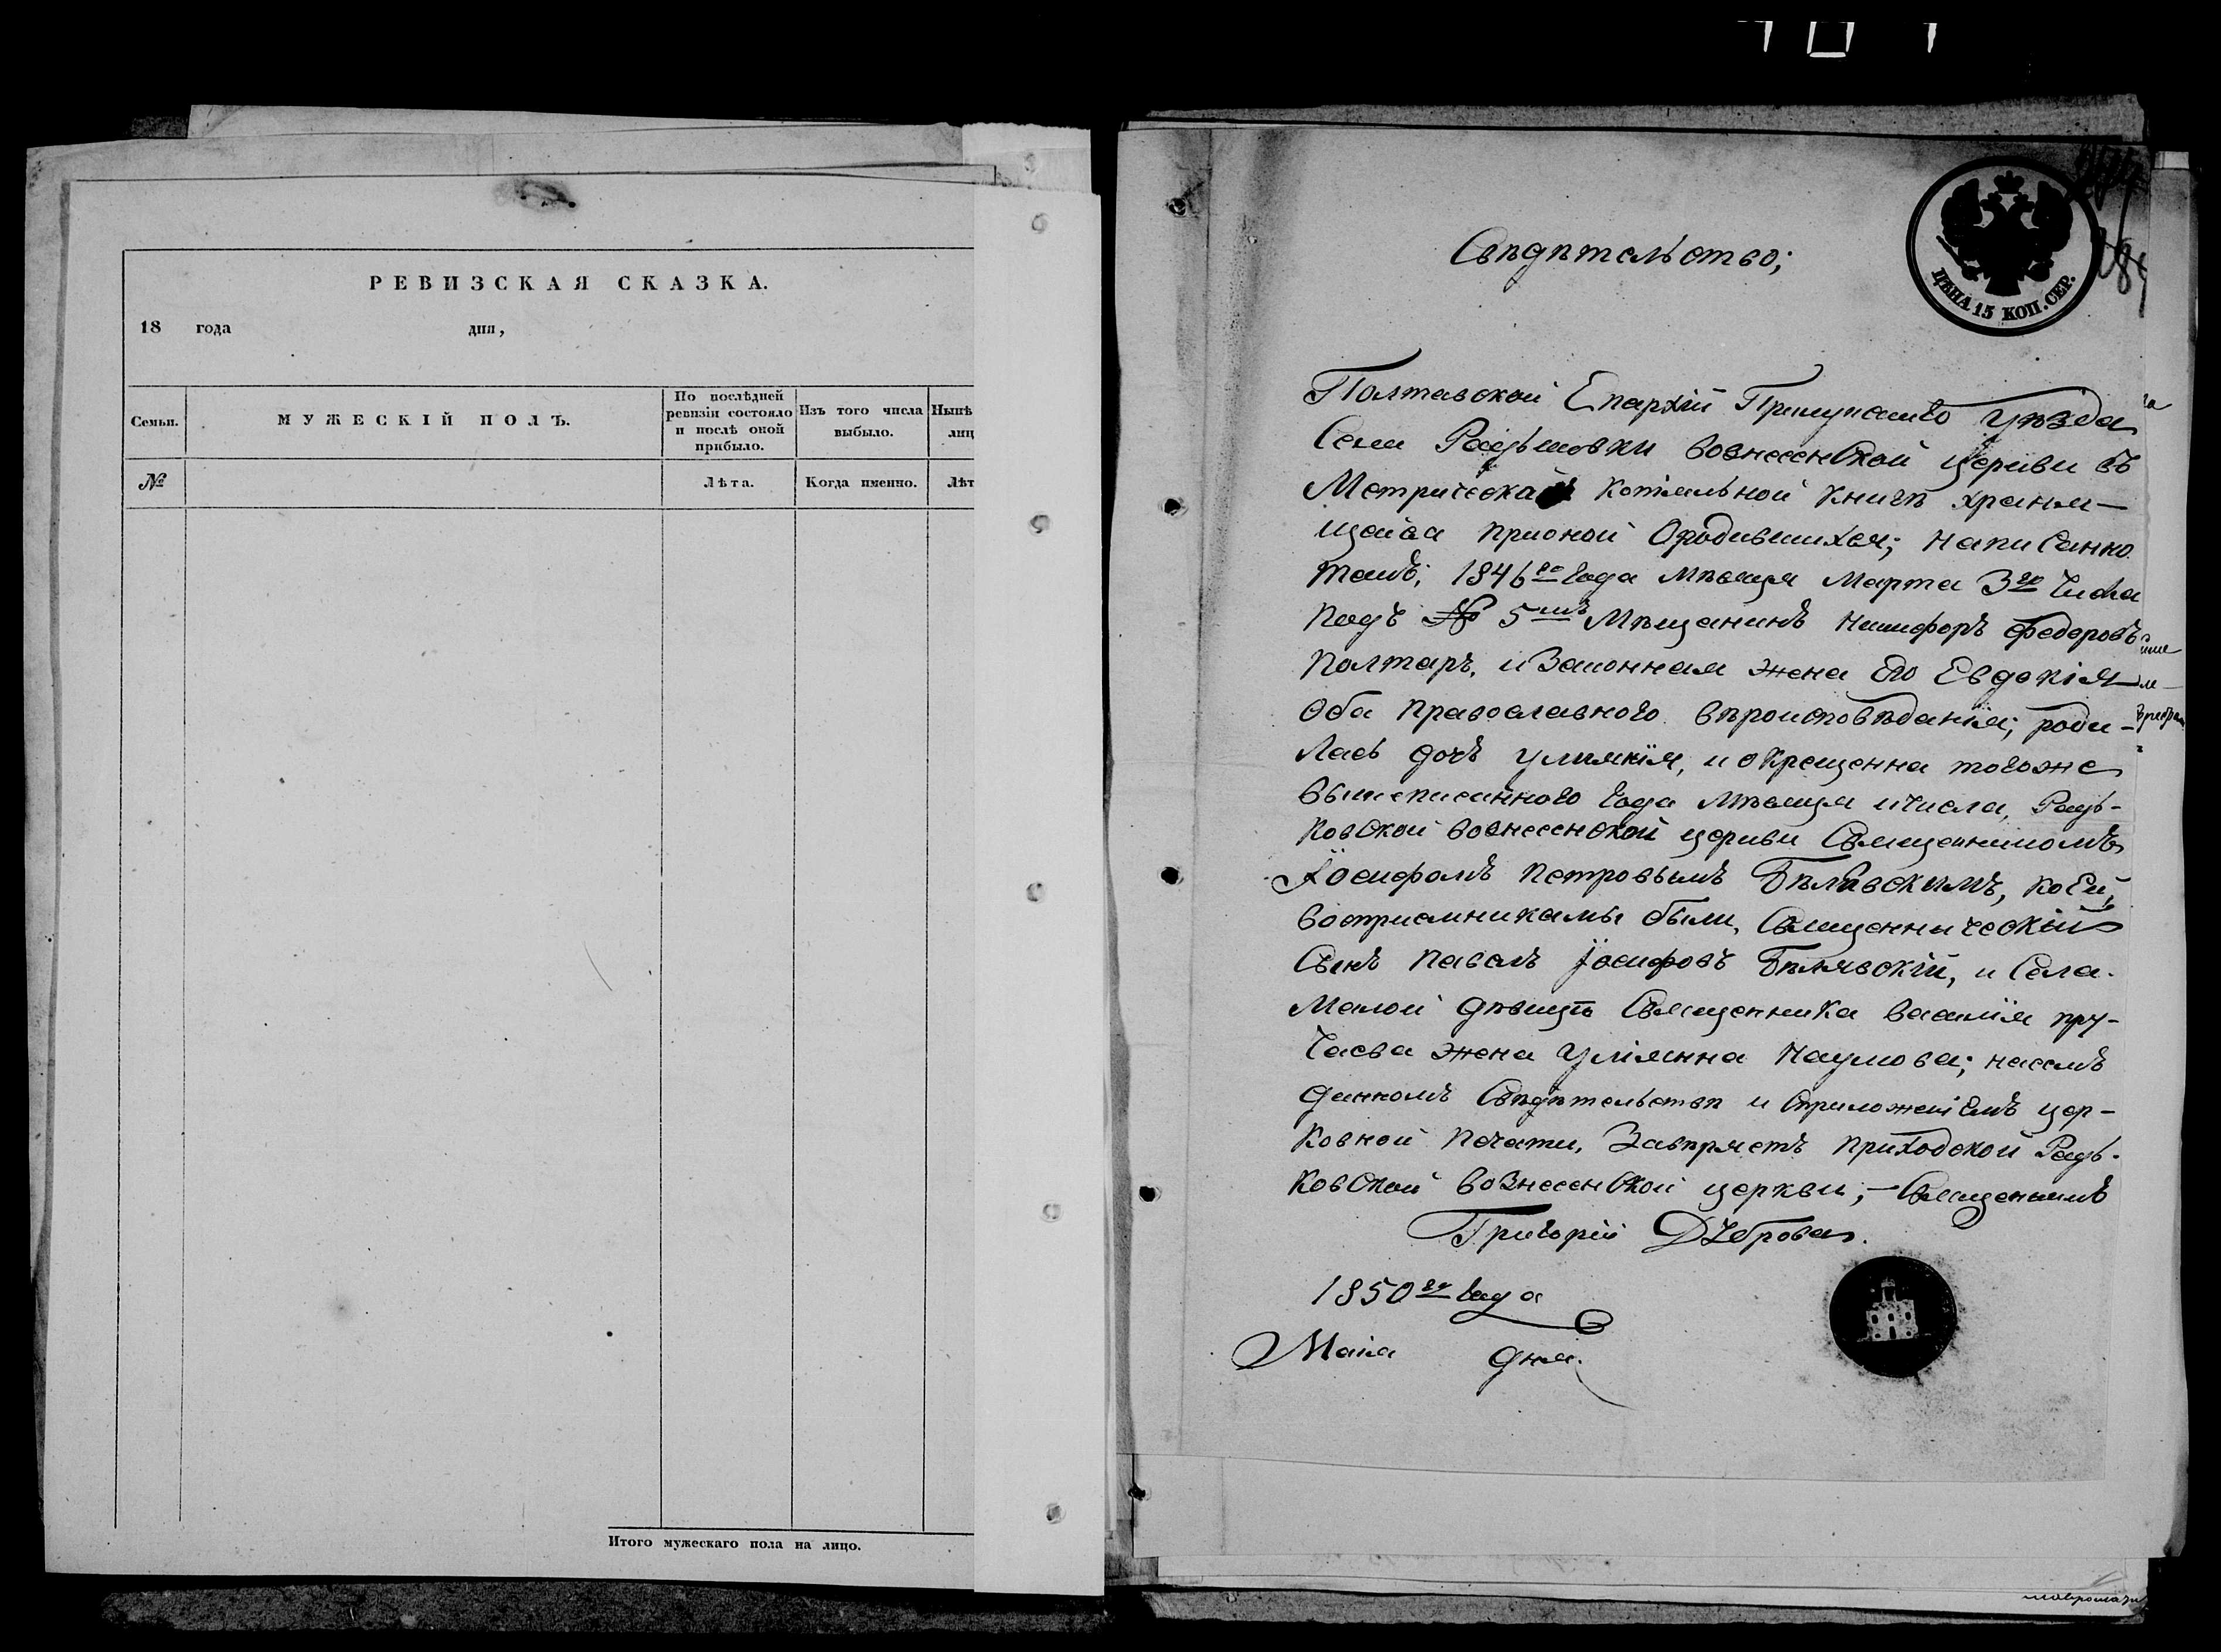 РЕВИЗСКАЯ СКАЗКА.
18 года дня,
Семьи.
МУЖЕСКІЙ ПОЛЪ.
По послѣдней ревизіи состояло и послѣ оной прибыло.
Изъ того числа выбыло.
Нынѣ лиц
№
Лѣта.
Когда именно.
Лѣт
Итого мужескаго пола на лицо.
ЦѢНА 15 КОП. СЕР.
Свѣдѣтельство;
Полтавской Епархіи Прилуцкаго Уѣзда
Села Радьковки вознесенской церкви въ
Метрической копіальной книгѣ храня–
щойся прионой Ородившихся; написанно
такъ; 1846го года мѣсяца Марта 3го Числа
подъ № 5мъ Мѣщанинъ Никифоръ Федоровъ
Полтаръ, и Законная жена Его Евдокія
оба православного вѣроисповѣданія; роди–
лась дочъ Улиянія, и окрещенна тогоже
вышеписанного года мѣсяца ичисла, Радь-
ковской вознесенской церкви Священикомъ
Іосифомъ Петровымъ Бѣлявскимъ, коей
восприемниками были, Священический
Сынъ Павелъ Іосифовъ Бѣлявскій, и Села
Малой дѣвицѣ Священника Василія
жена Уліянна Наумова; насемъ
данномъ Свѣдѣтельствѣ и Сприложеніемъ цер–
ковной печати, Завѣряетъ приходской Радь-
ковской вознесенской церкви,– Священикъ
Григорій
1850го года
Маія дня.